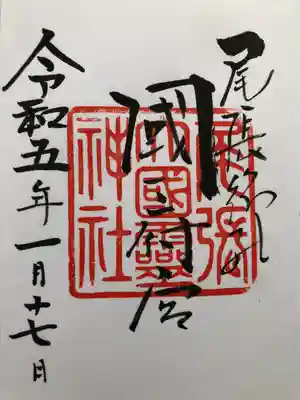 尾張総社
國府宮
尾張
大國靈
神社
令和五年一月十七日